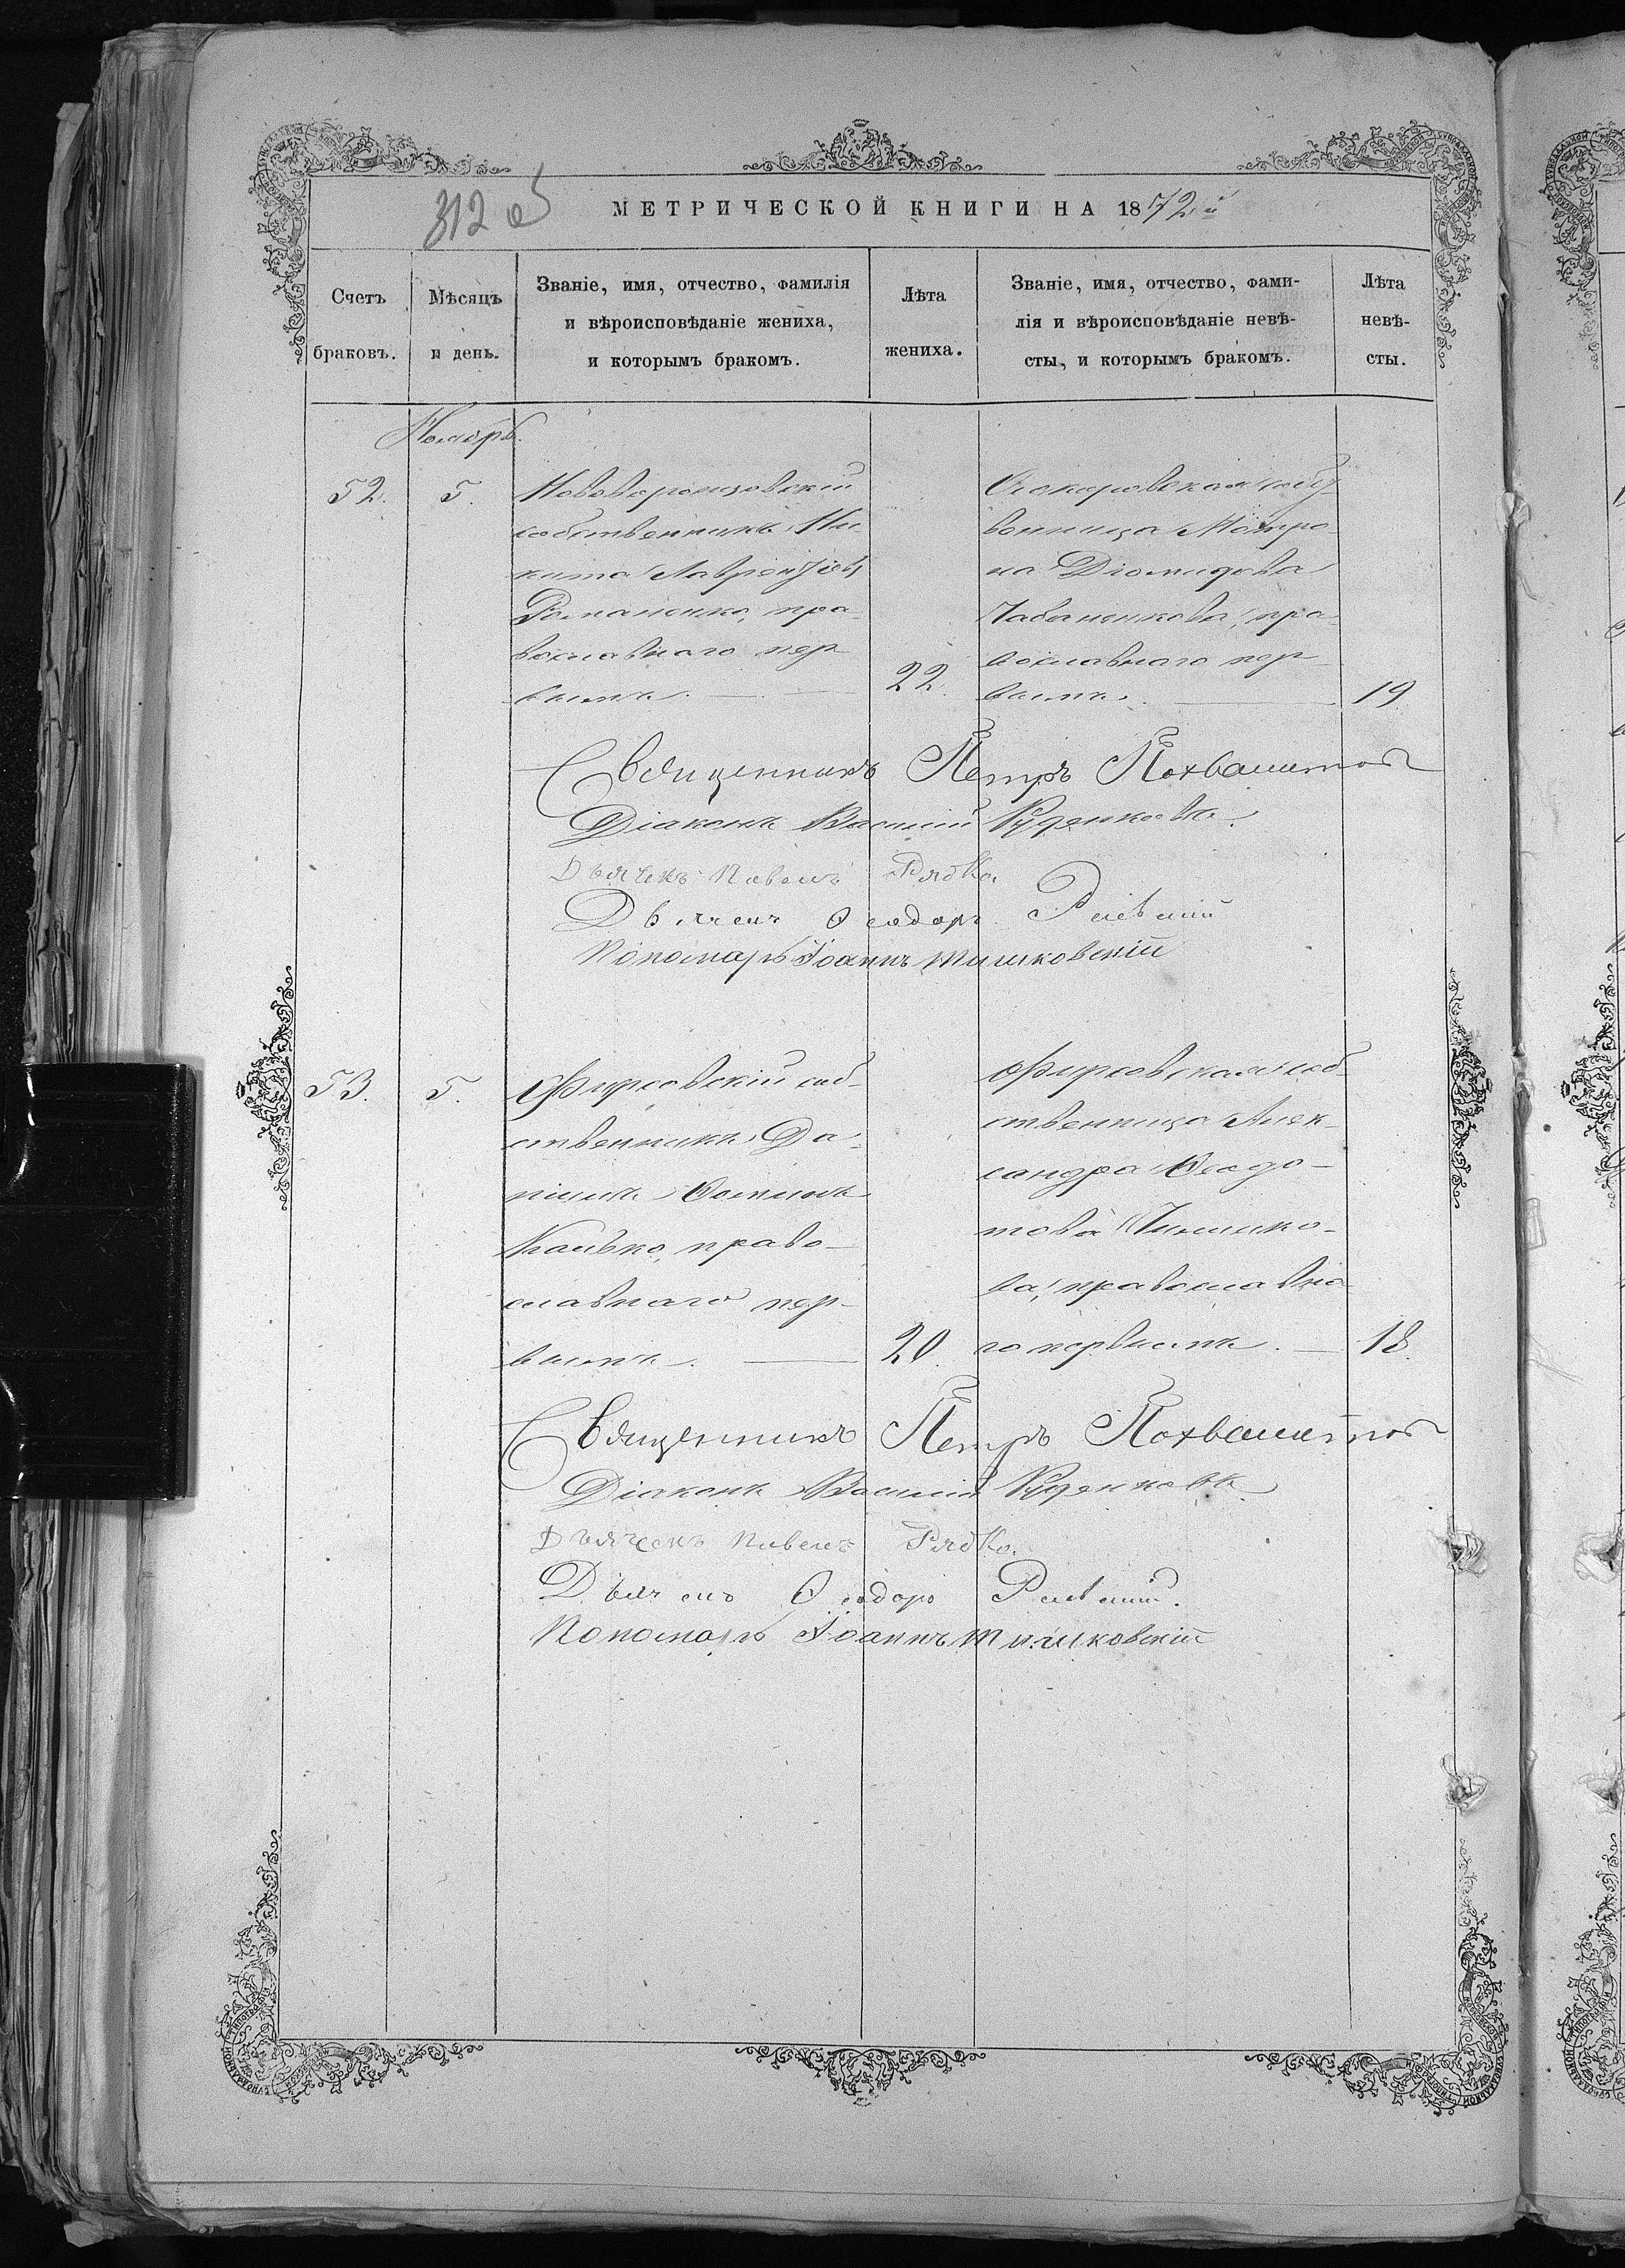 312 об
МЕТРИЧЕСКОЙ КНИГИ НА 1872й
Счетъ браковъ.
Мѣсяцъ и день.
Званіе, имя, отчество, фамилія
и вѣроисповѣданіе жениха,
и которымъ бракомъ.
Лѣта
жениха.
Званіе, имя, отчество, фами-
лія и вѣроисповѣданіе невѣ-
сты, и которымъ бракомъ.
Лѣта
невѣ-
сты.
Ноябрь.
52.
5.
Нововоронцовскій
собственникъ Ни-
кита Лаврентіевъ
Романенко, пра-
вославнаго пер-
вымъ.
22.
вонница Матро-
на Діомидова
Чабаненкова, пра-
вославнаго пер-
вымъ.
19
Священникъ Петръ Похвалитовъ
Діаконъ Василій Руденковъ.
Дьячекъ Павелъ Рябко.
Дьячекъ Ѳеодоръ
Пономарь Іоаннъ Тишковскій
53.
5.
Фирсовскій соб-
ственникъ Да-
ніилъ Ѳоминъ
право-
славнаго пер-
вымъ.
20.
Фирсовская соб-
ственница Алек-
сандра Ѳеодо-
това
ва, православна-
го первымъ.
18.
Священникъ Петръ Похвалитовъ
Діаконъ Василій Руденковъ
Дьячекъ Павелъ Рябко.
Дьячекъ Ѳеодоръ
Пономарь Іоаннъ Тишковскій